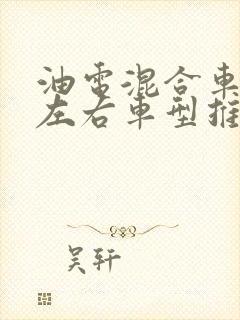 油電混合車
左右車型推
吴轩